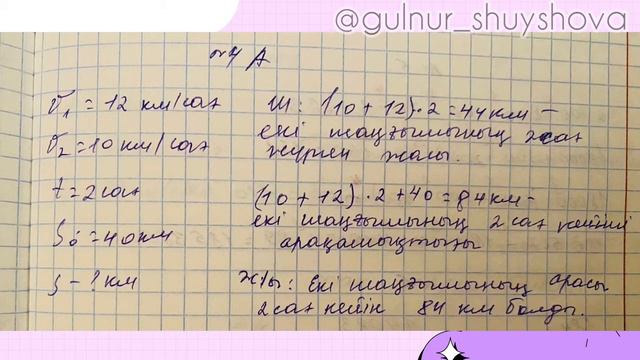 @gulnur_shuyshova
№4 А
V₁ = 12 км/сағ
V₂ = 10 км/сағ
t = 2 сағ
S₀ = 40 км
S - ? км
Ш: (10 + 12) · 2 = 44 км –
екі шаңғышының 2 сағ
жүрген жолы.
(10 + 12) · 2 + 40 = 84 км –
екі шаңғышының 2 сағ кейінгі
арақашықтығы
Ж/бы: Екі шаңғышының арасы
2 сағ кейін 84 км болды.